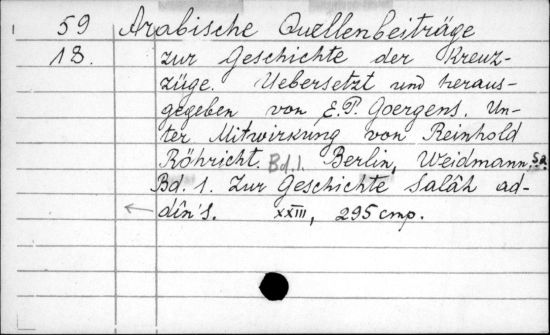 59 Arabische Quellenbeiträge
13. zur Geschichte der Kreuz-
züge. Uebersetzt und heraus-
gegeben von E.P. Goergens. Un-
ter Mitwirkung von Reinhold
Röhricht. Bd.1. Berlin, Weidmann, Sa.
Bd. 1. Zur Geschichte Salâh ad-
dîn's. XXIII, 295 стр.